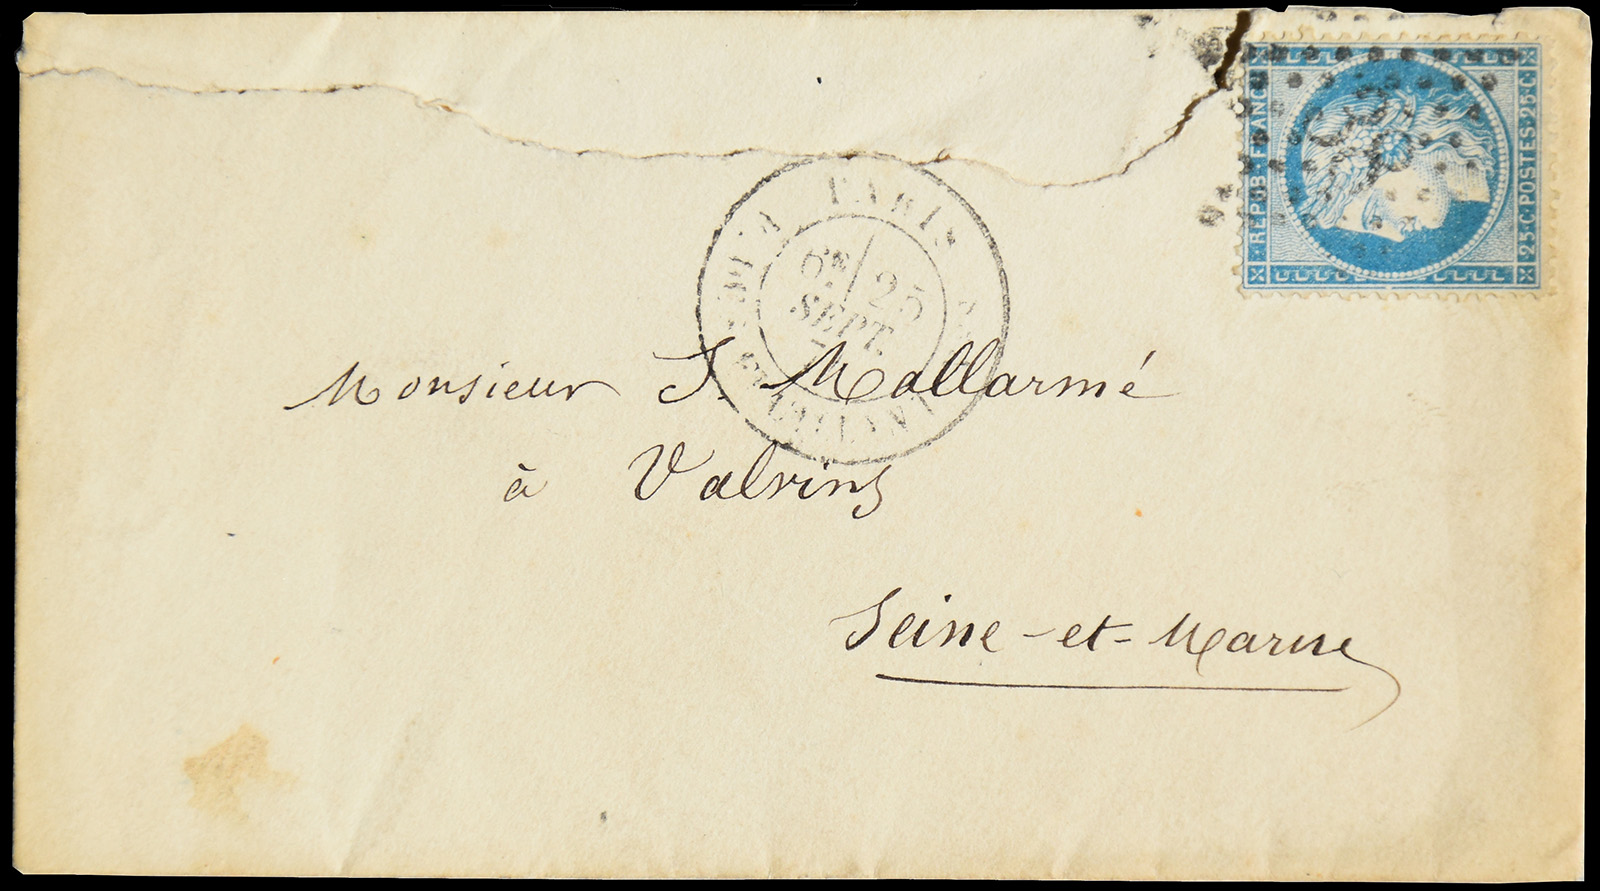 REPUB FRANC
25·C·POSTES·25·C·
PARIS
6E 25
SEPT.
7
Monsieur S. Mallarmé
à Valvins
Seine-et-Marne